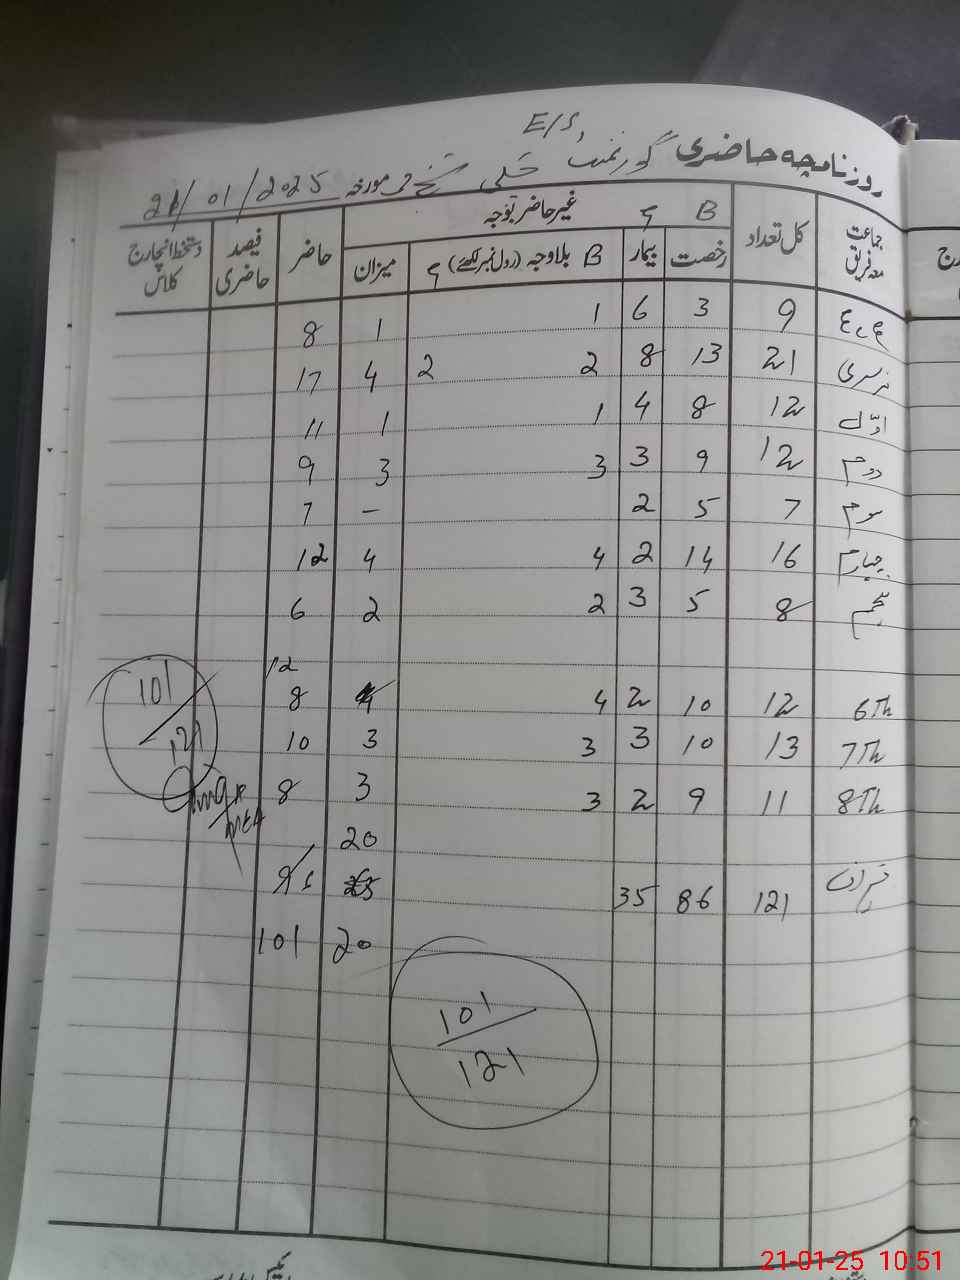 E/S,
روزنامچہ حاضری گورنمنٹ مورخہ 21/01/2025
جماعت معہ فریق کل تعداد B رخصت G بیمار غیر حاضر بوجہ B بلاوجہ (رول نمبر لکھئے) G میزان حاضر فیصد حاضری دستخط انچارج کلاس
9 3 6 1 1 8
نرسری 21 13 8 2 2 4 17
اوّل 12 8 4 1 1 11
دوم 12 9 3 3 3 9
سوم 7 5 2 - 7
چہارم 16 14 2 4 4 12
پنجم 8 5 3 2 2 6
12
6Th 12 10 2 4 4 8
7Th 13 10 3 3 3 10
8Th 11 9 2 3 3 8
101/121
20
میزان 121 86 35
101 20
101/121
21-01-25 10:51